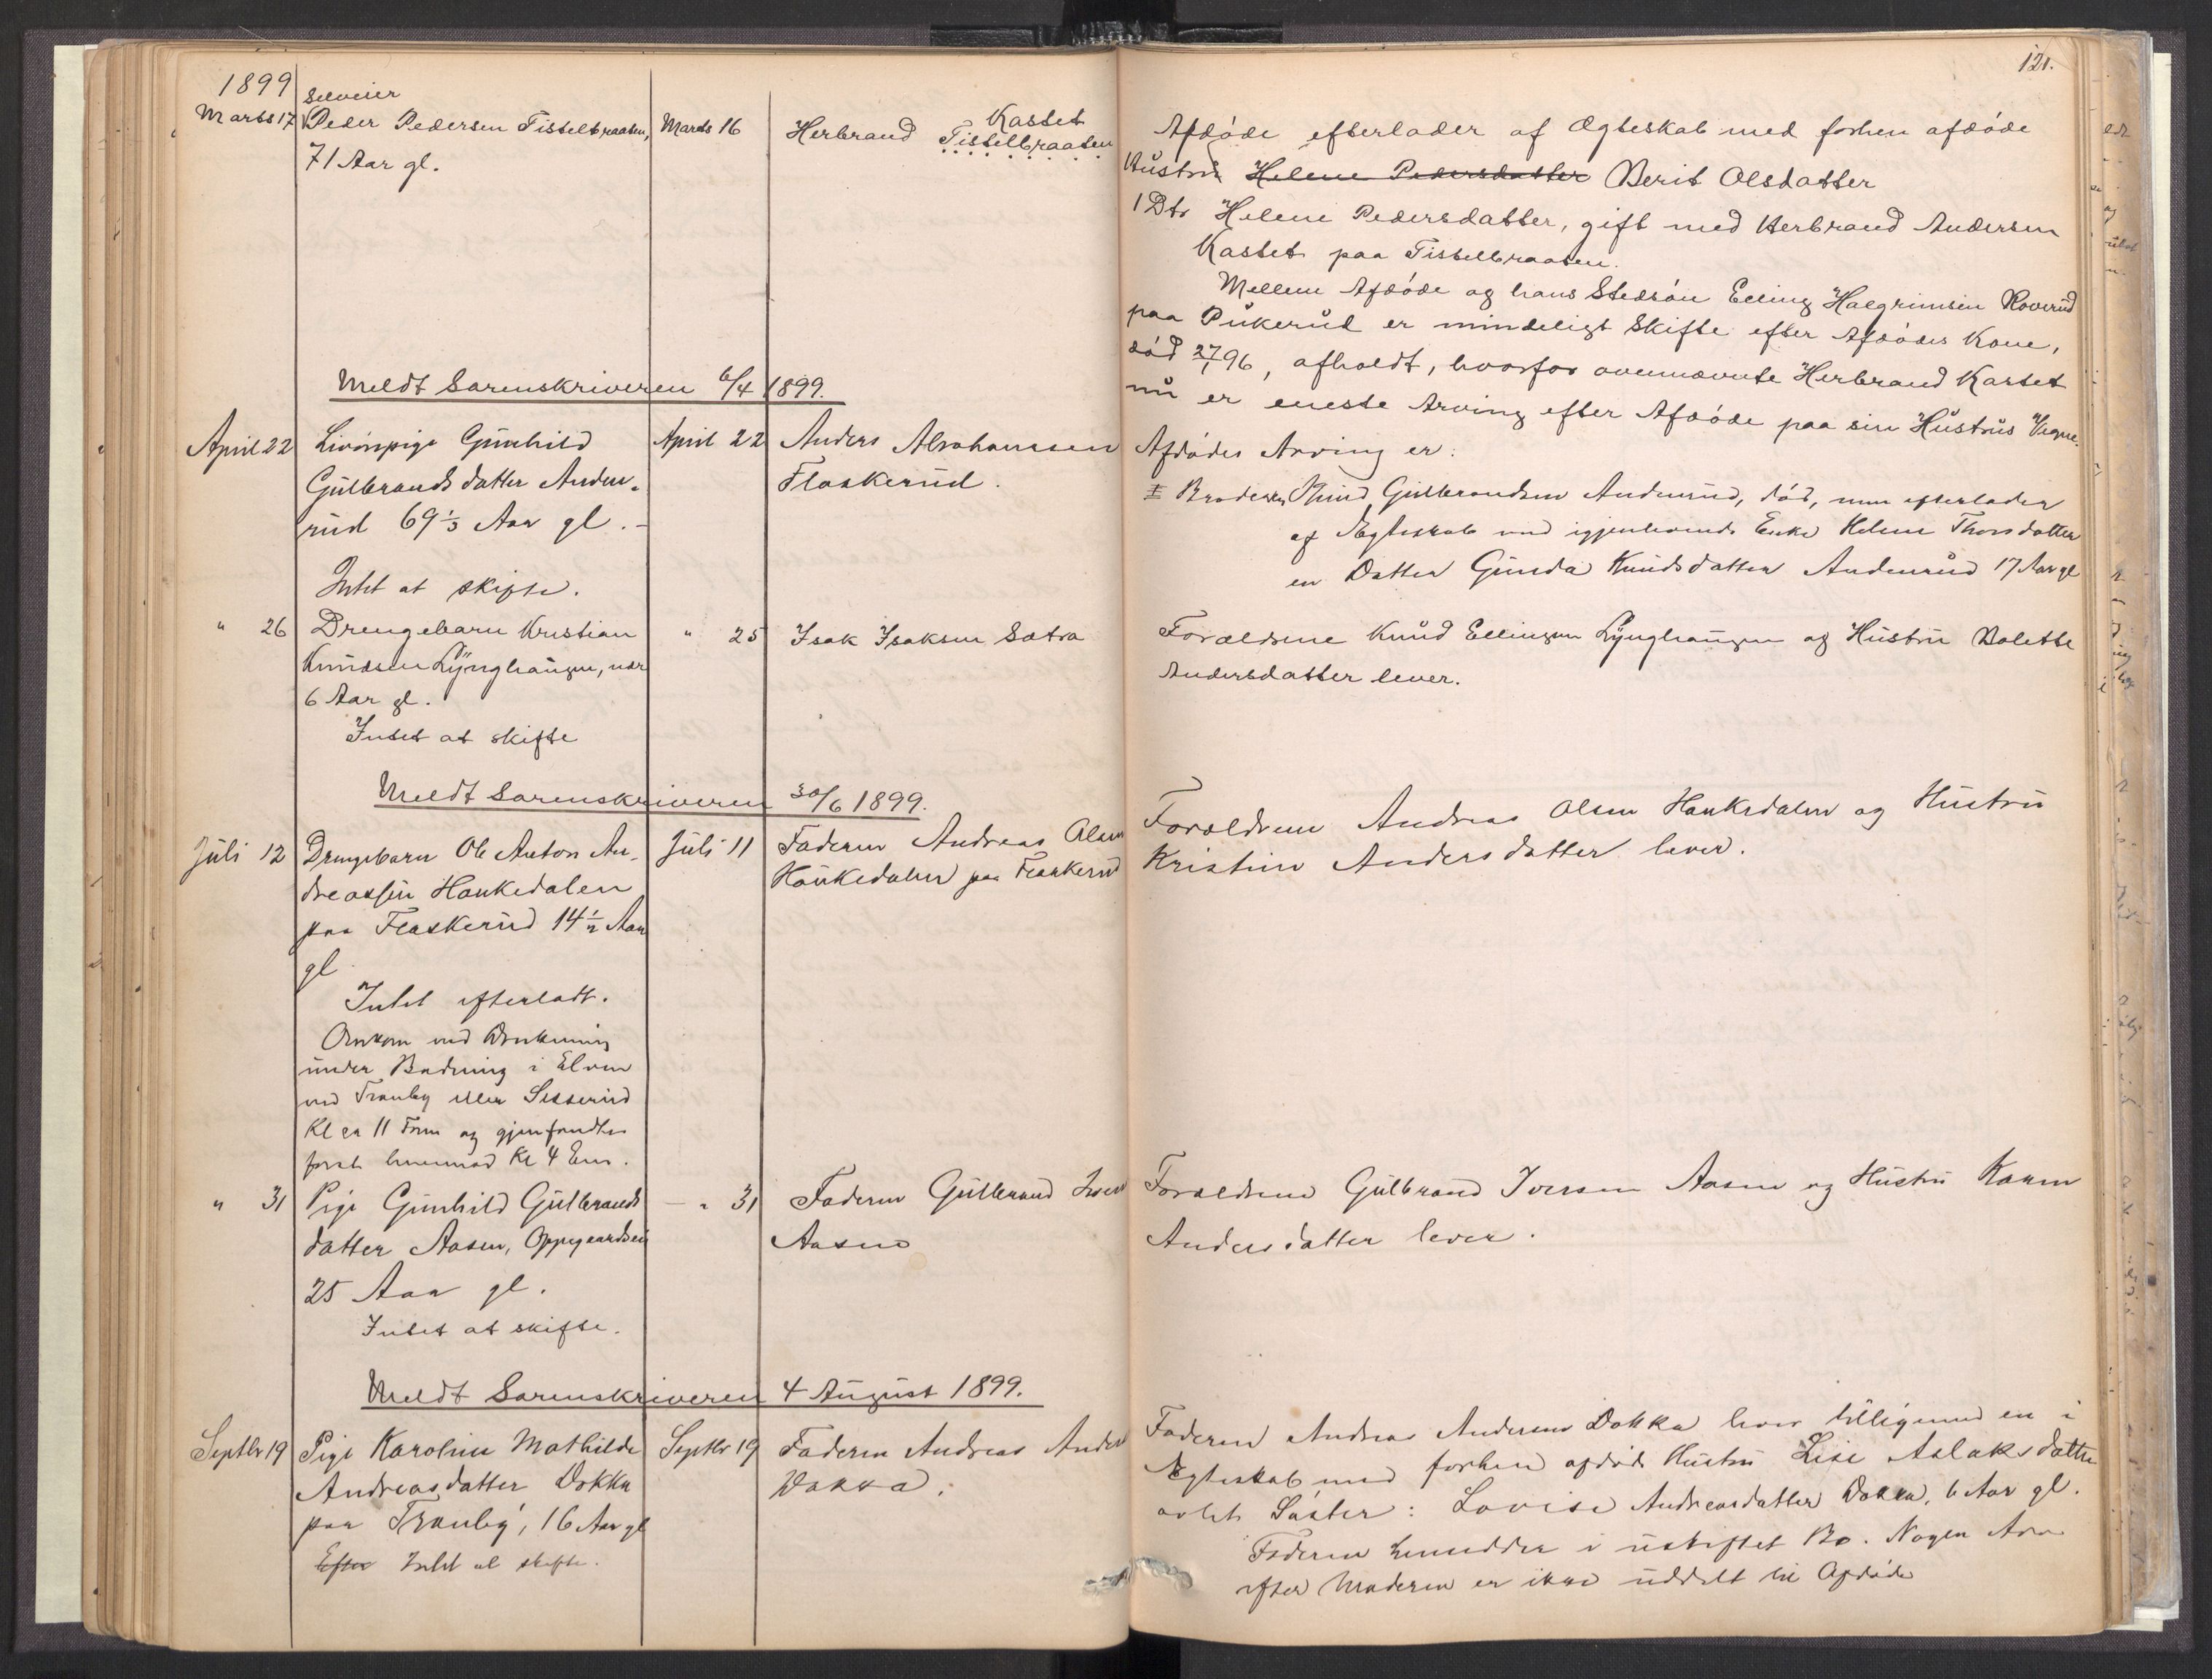 121.
1899
Marts 17
Selveier
Peder Pedersen Tistelbraaten,
71 Aar gl.
Marts 16
Kastet
Herbrand Tistelbraaten
Afdøde efterlader af Ægteskab med forhen afdøde
Hustru Helene Pedersdatter Berit Olsdatter
1 Dtr Helene Pedersdatter, gift med Herbrand Andersen
Kastet paa Tistelbraaten.
Mellem Afdøde og hans Stedsøn Elling Halgrimsen Roverud
paa Pukerud er mindeligt Skifte efter Afdødes Kone,
død 96, afholdt, hvorfor ovennævnte Herbrand Kastet
nu er eneste Arving efter Afdøde paa sin Hustrus Vegne.
Meldt Sorenskriveren 6/4 1899.
April 22
Livørspige Gunhild
Gulbrandsdatter Anden-
rud 69 1/3 Aar gl. -
Intet at skifte.
April 22
Anders Abrahamsen
Flaskerud.
Afdødes Arving er:
I Broderen Knud Gulbrandsen Andenrud, død, men efterlader
af Ægteskab med igjenlevende Enke Helene Thorsdatter
en Datter Gunda Knudsdatter Andenrud 17 Aar gl
" 26
Drengebarn Kristian
Knudsen Lynghaugen, nær
6 Aar gl.
Intet at skifte
" 25
Isak Isaksen Sætra
Forældrene Knud Ellingsen Lynghaugen og Hustru Bolette
Andersdatter lever.
Meldt Sorenskriveren 30/6 1899.
Juli 12
Drengebarn Ole Anton An-
dreassen Haukedalen
paa Flaskerud 14 1/2 Aar
gl
Intet efterladt.
Omkom ved Drukning
under Badning i Elven
ved Tranby eller Sisserud
Kl ca 11 Form og gjenfandtes
først henimod Kl 4 Em.
Juli 11
Faderen Andreas Olsen
Haukedalen paa Flaskerud
Forældrene Andreas Olsen Haukedalen og Hustru
Kristine Andersdatter lever.
" 31
Pige Gunhild Gulbrands
datter Aasen, Oppegaardsei
25 Aar gl.
Intet at skifte.
- " 31
Faderen Gulbrand Ivers
Aasen
Forældrene Gulbrand Iversen Aasen og Hustru Karen
Andersdatter lever.
Meldt Sorenskriveren 4 August 1899.
Septbr 19
Pige Karoline Mathilde
Andreasdatter Dokka
paa Tranby, 16 Aar gl
Efter Intet at skifte.
Septbr 19
Faderen Andreas Anders
Dokka.
Faderen Andreas Andersen Dokka lever tilligemed en i
Ægteskab med forhen afdøde Hustru Lise Aslaksdatter
avlet Søster: Lovise Andreasdatter Dokka, 6 Aar gl.
Faderen hensidder i uskiftet Bo. Nogen Arv
efter Moderen er ikke uddelt til Afdøde